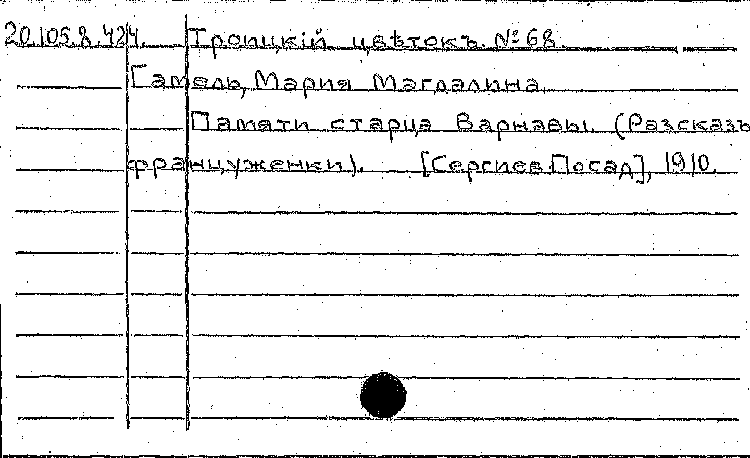 20.105.8.424. Троицкій цвѣтокъ. № 68.
Гамель, Мария Магдалина.
Памяти старца Варнавы. (Разсказъ
француженки). [Сергиев.Посад], 1910.